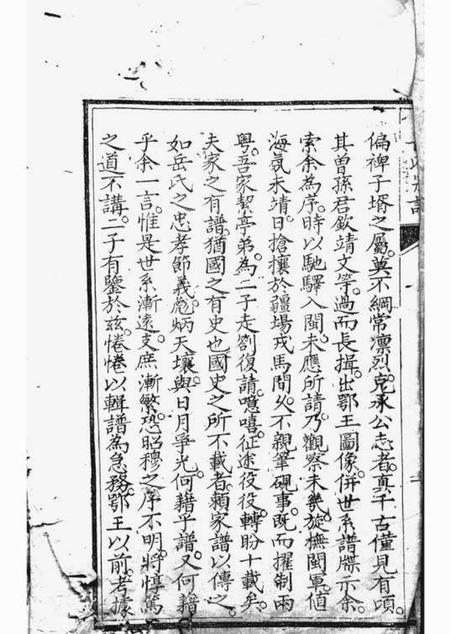 偏裨子壻之屬。莫不綱常凛烈。克承公志者。真千古僅見。有頃。
其曾孫君欽靖文等。過而長揖。出鄂王圖像。併世系譜牒示余。
索余為序。時以馳驛入閩。未應所請。乃觀察未幾。旋撫閩軍。值
海氛未靖。日搶攘於疆場戎馬間。久不親筆硯事。既而擢制兩
粵。吾家契亭弟。為二子走劄復請。噫嘻。征途役役。轉盼十載矣。
夫家之有譜。猶國之有史也。國史之所不載者。賴家譜以傳之。
如岳氏之忠孝節義。彪炳天壤。與日月爭光。何藉乎譜。又何藉
乎余一言。惟是世系漸遠。支庶漸繁。恐昭穆之序不明。將惇篤
之道不講。二子有鑒於茲。惓惓以輯譜為急務。鄂王以前。考據